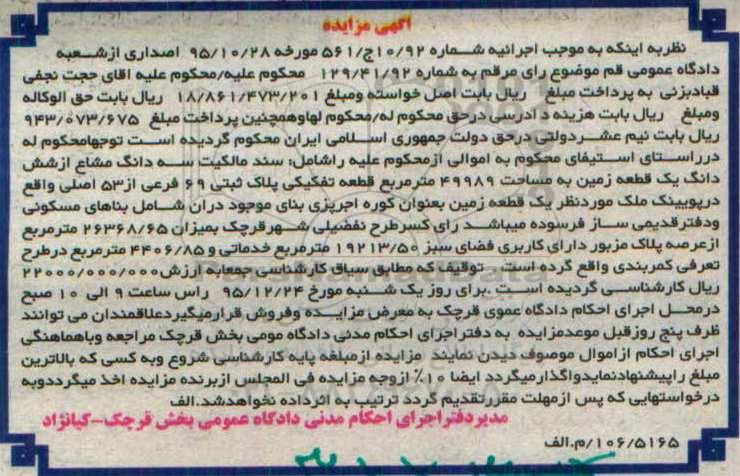 آگهی مزایده
نظربه اینکه به موجب اجرائیه شماره ۱۰/۹۲ج/۵۶۱ مورخه ۹۵/۱۰/۲۸ اصداری ازشعبه
دادگاه عمومی قم موضوع رای مرقم به شماره ۱۲۹/۴۱/۹۲ محکوم علیه/محکوم علیه اقای حجت نجفی
قبادبزنی به پرداخت مبلغ ریال بابت اصل خواسته ومبلغ ۱۸/۸۶۱/۴۷۳/۲۰۱ ریال بابت حق الوکاله
ومبلغ ریال بابت هزینه د ادرسی درحق محکوم له/محکوم لهاوهمچنین پرداخت مبلغ ۹۴۳/۰۷۳/۶۷۵
ریال بابت نیم عشردولتی درحق دولت جمهوری اسلامی ایران محکوم گردیده است توجهامحکوم له
درراستای استیفای محکوم به اموالی ازمحکوم علیه راشامل: سند مالکیت سه دانگ مشاع ازشش
دانگ یک قطعه زمین به مساحت ۴۹۹۸۹ مترمربع قطعه تفکیکی پلاک ثبتی ۶۹ فرعی از۵۳ اصلی واقع
درپوینک ملک موردنظر یک قطعه زمین بعنوان کوره اجرپزی بنای موجود دران شامل بناهای مسکونی
ودفترقدیمی ساز فرسوده میباشد رای کسرطرح تفضیلی شهرقرچک بمیزان ۲۶۳۶۸/۶۵ مترمربع
ازعرصه پلاک مزبور دارای کاربری فضای سبز ۱۹۲۱۳/۵۰ مترمربع خدماتی و ۴۴۰۶/۸۵ مترمربع درطرح
تعرفی کمربندی واقع گرده است توقیف که مطابق سیاق کارشناسی جمعابه ارزش ۲۲۰۰۰/۰۰۰/۰۰۰
ریال کارشناسی گردیده است .برای روز یک شنبه مورخ ۹۵/۱۲/۲۴ راس ساعت ۹ الی ۱۰ صبح
درمحل اجرای احکام دادگاه عموی قرچک به معرض مزایده وفروش قرارمیگیردعلاقمندان می توانند
ظرف پنج روزقبل موعدمزایده به دفتراجرای احکام مدنی دادگاه مومی بخش قرچک مراجعه وباهماهنگی
اجرای احکام ازاموال موصوف دیدن نمایند مزایده ازمبلغه پایه کارشناسی شروع وبه کسی که بالاترین
مبلغ راپیشنهادنمایدواگذارمیگردد ایضا ۱۰٪ ازوجه مزایده فی المجلس ازبرنده مزایده اخذ میگرددوبه
درخواستهایی که پس ازمهلت مقررتقدیم گردد ترتیب به اثرداده نخواهدشد.الف
مدیردفتراجرای احکام مدنی دادگاه عمومی بخش قرچک-کیانژاد
۱۰۶/۵۱۶۵/م.الف